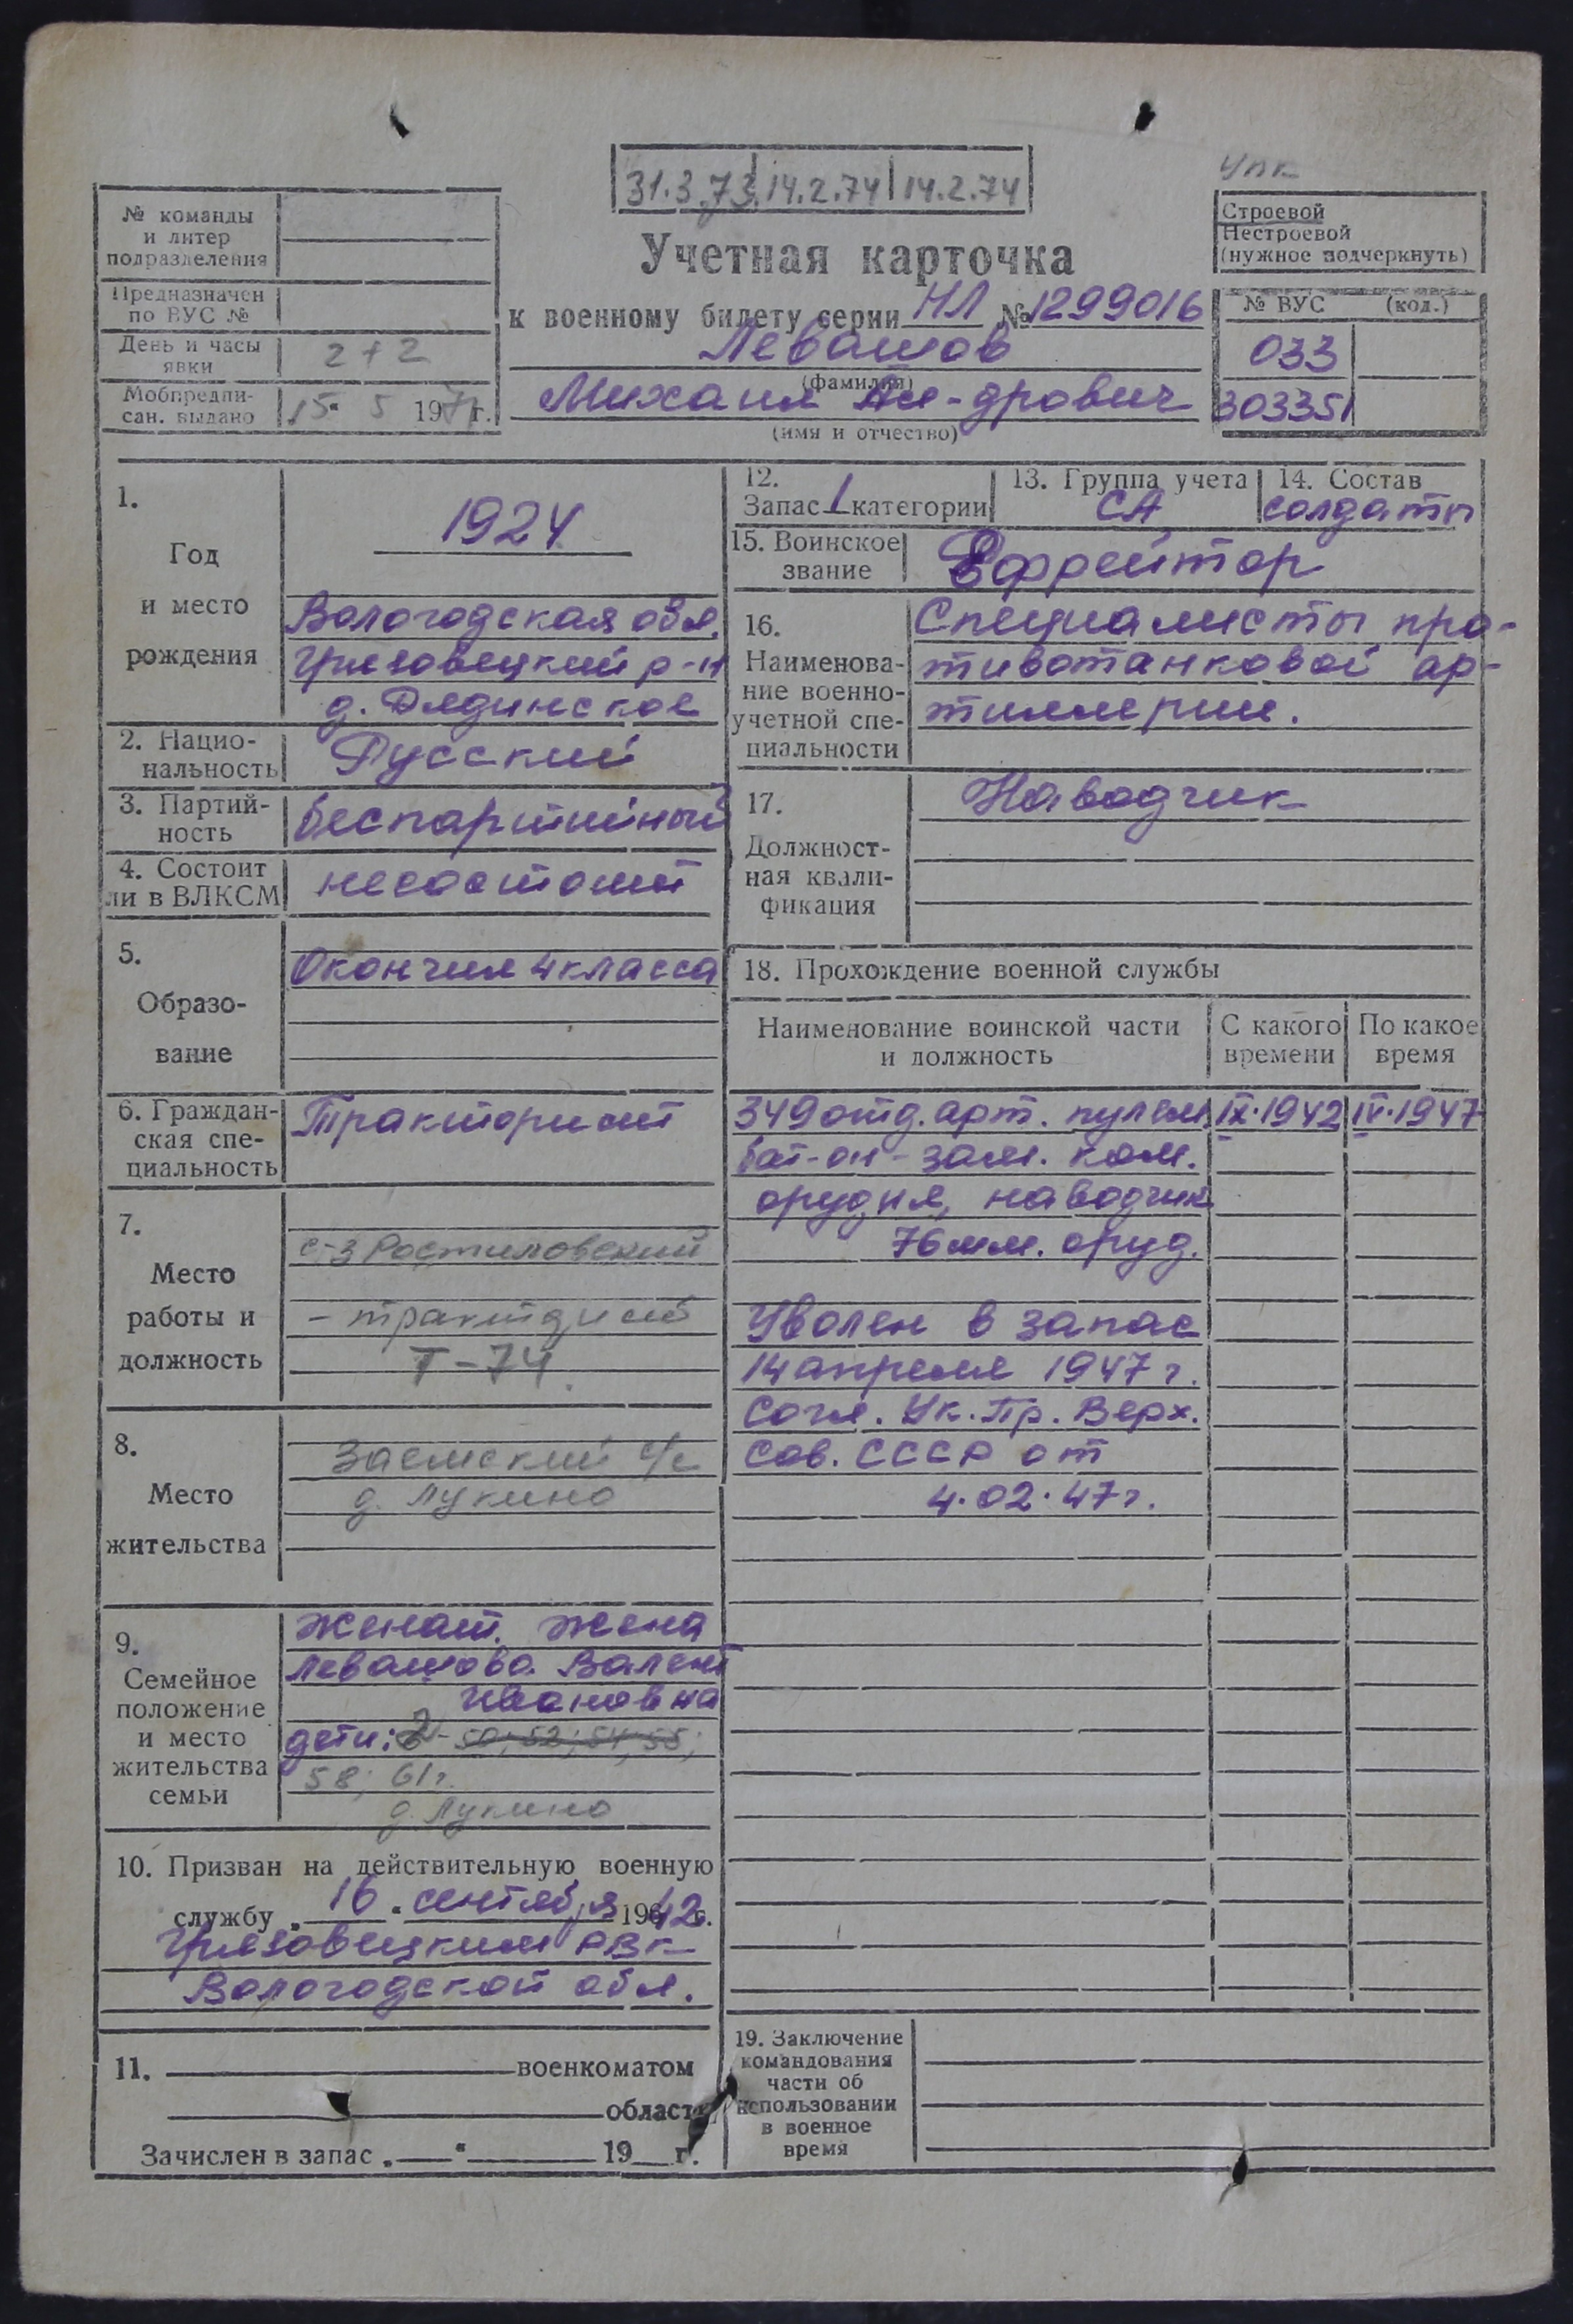 31.3.73 14.2.74 14.2.74
УПК
№ команды
и литер
подразделения
Предназначен
по ВУС №
День и часы
явки
2+2
Мобпредпи-
сан. выдано
15 " 5 197 г.
Учетная карточка
к военному билету серии НЛ № 1299016
Левашов
(фамилия)
Михаил Ал-дрович
(имя и отчество)
Строевой
Нестроевой
(нужное подчеркнуть)
№ ВУС (код.)
033
303351
1.
Год
и место
рождения
1924
Вологодская обл.
Грязовецкий р-н
д. Дядинское
2. Нацио-
нальность
Русский
3. Партий-
ность
беспартийный
4. Состоит
ли в ВЛКСМ
несостоит
5.
Образо-
вание
Окончил 4 класса
6. Граждан-
ская спе-
циальность
Тракторист
7.
Место
работы и
должность
с-з Ростиловский
- тракторист
Т-74
8.
Место
жительства
Заемский с/с
д. Лукино
9.
Семейное
положение
и место
жительства
семьи
Женат. жена
Левашова Валент
Ивановна
дети: 2 - 50; 52; 54; 55;
58; 61г.
д. Лукино
10. Призван на действительную военную
службу „16" сентября 1942г.
Грязовецким РВК
Вологодской обл.
11. военкоматом
области
Зачислен в запас „ " 19 г.
12.
Запас 1 категории
13. Группа учета
СА
14. Состав
солдаты
15. Воинское
звание
Ефрейтор
16.
Наименова-
ние военно-
учетной спе-
циальности
Специалисты про-
тивотанковой ар-
тиллерии.
17.
Должност-
ная квали-
фикация
Наводчик
18. Прохождение военной службы
Наименование воинской части
и должность
С какого
времени
По какое
время
349 отд. арт. пулем. IX.1942 IV.1947
бат-он - зам. ком.
орудия, наводчик
76 мм. оруд.
Уволен в запас
14 апреля 1947 г.
Согл. Ук. Пр. Верх.
Сов. СССР от
4.02.47г.
19. Заключение
командования
части об
использовании
в военное
время